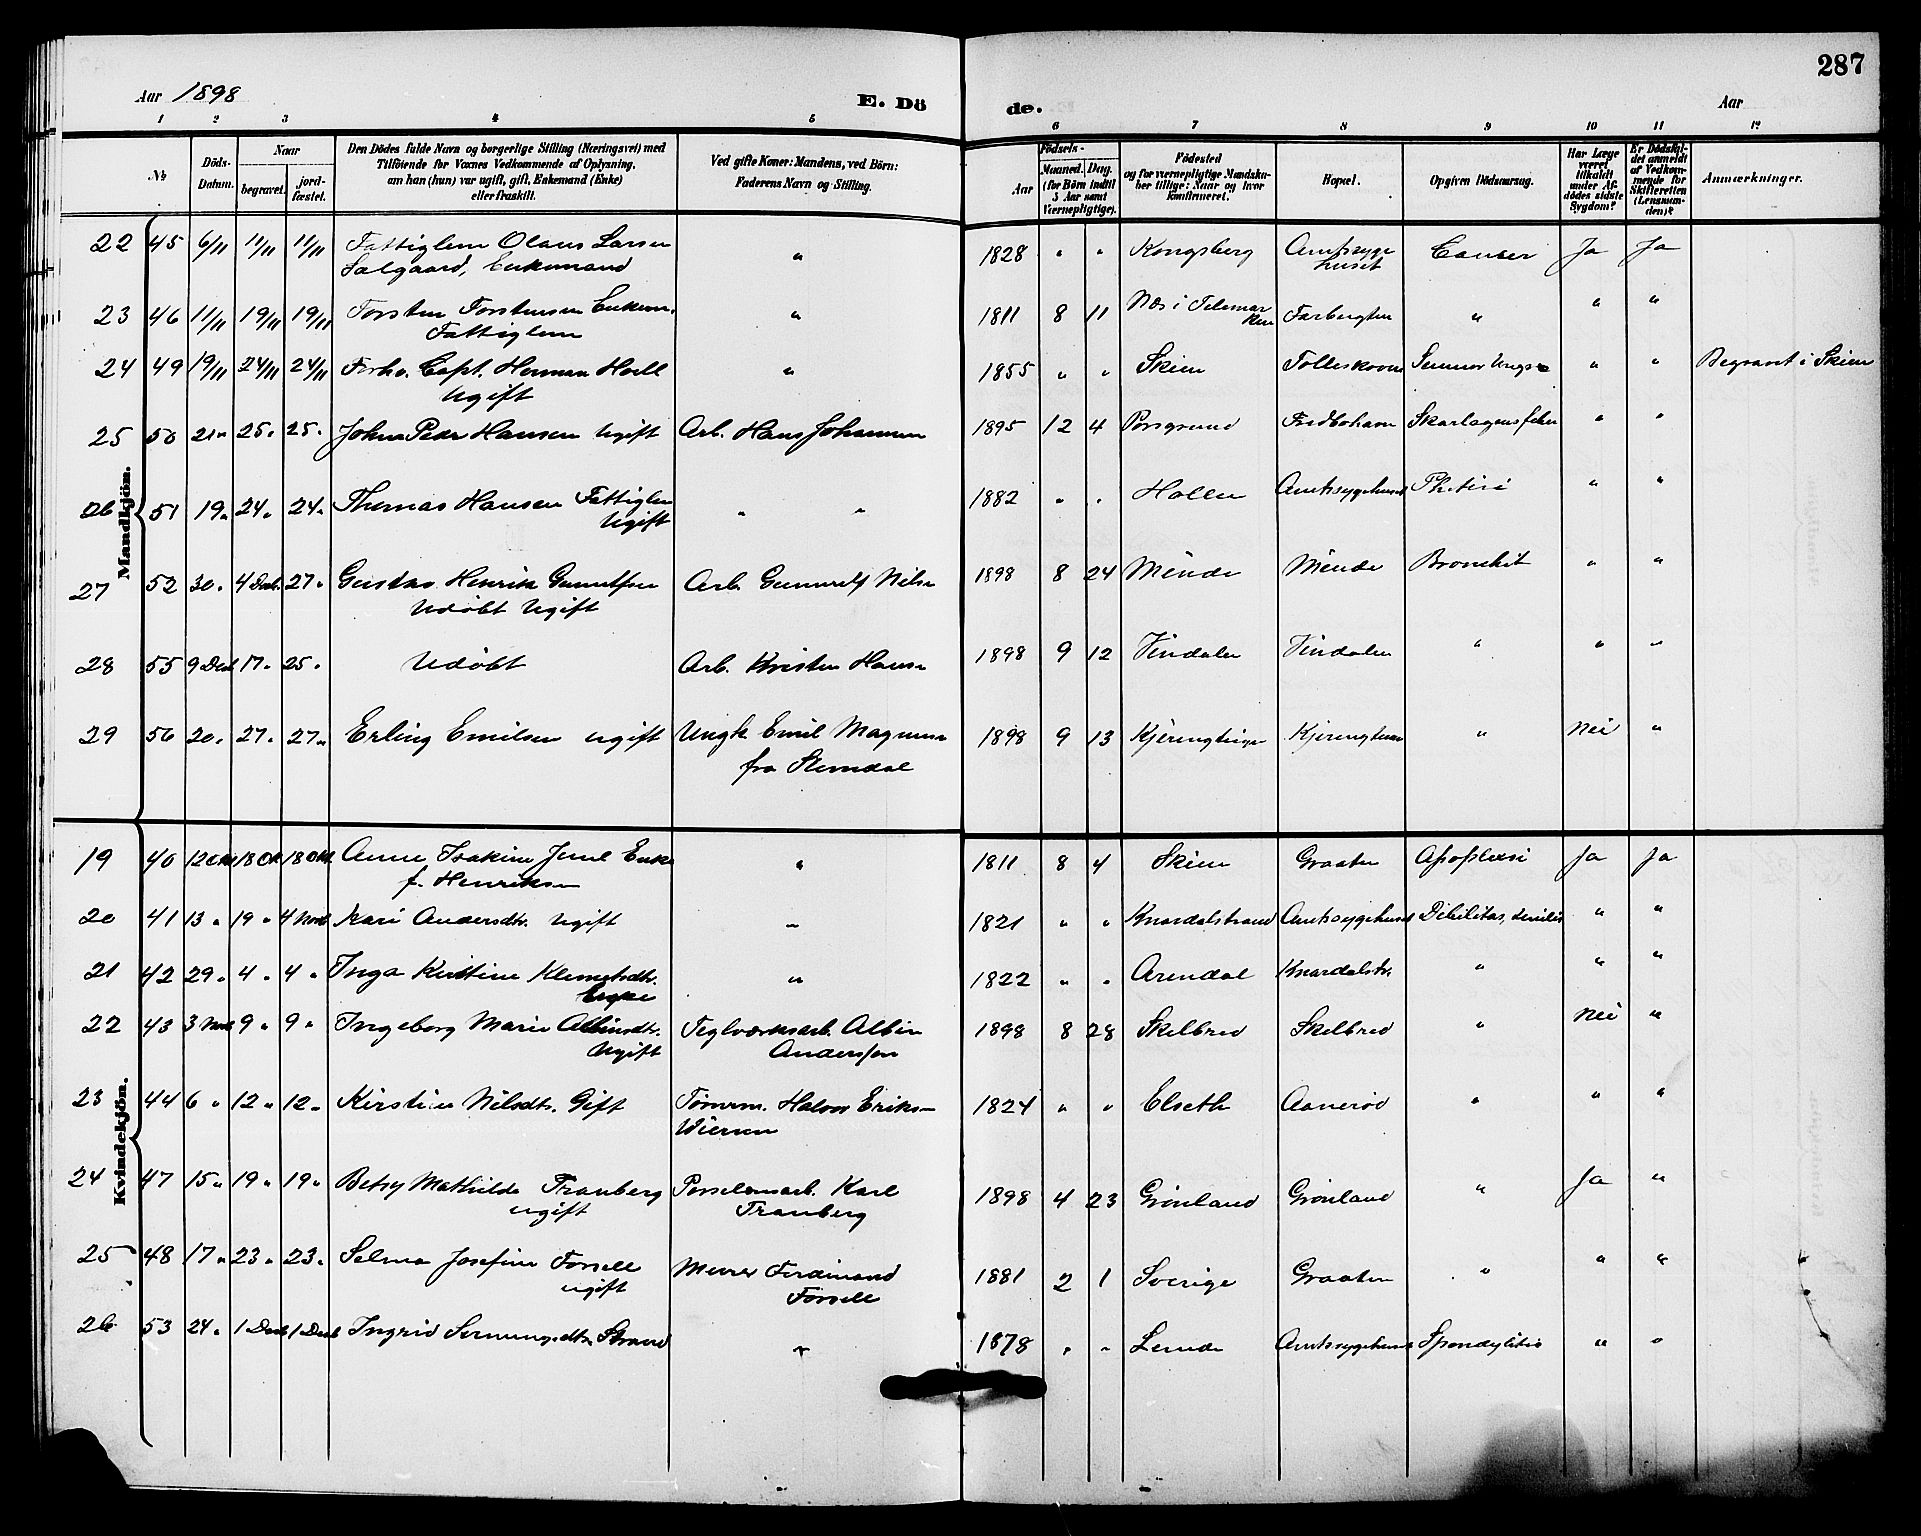 287
Aar 1898 E. Dö de. Aar
1 2 3 4 5 6 7 8 9 10 11 12
№ Döds-Datum. Naar begravet. jordfæstet. Den Dödes fulde Navn og borgerlige Stilling (Næringsvei) med Tilföiende for Voxnes Vedkommende af Oplysning, om han (hun) var ugift, gift, Enkemand (Enke) eller fraskilt. Ved gifte Koner: Mandens, ved Börn: Faderens Navn og Stilling. Födsels- Aar Maaned. Dag. (for Börn indtil 5 Aar samt Værnepligtige). Födested og for værnepligtige Mandskaber tillige: Naar og hvor konfirmeret. Bopæl. Opgiven Dödsaarsag. Har Læge været tilkaldt under Afdödes sidste Sygdom? Er Dödsfaldet anmeldt af Vedkommende for Skifteretten (Lensmanden)? Anmærkninger.
Mandkjön.
22 45 6/11 11/11 11/11 Fattiglem Olaus Larsen " 1828 " " Kongsberg Amtssyge Cancer Ja Ja
Salgaard, Enkemand huset
23 46 11/11 19/11 19/11 Torsten Torstensen Enkem. " 1811 8 11 Næs i Telemar Farbergten " " "
Fattiglem ken
24 49 19/11 24/11 24/11 Forhv. Capt. Herman Hoell " 1855 " " Skien " " Begravet i Skien
Ugift
25 50 21" 25" 25" Johan Peder Hansen Ugift Arb. Hans Johannsen 1895 12 4 Porsgrund Skarlagensfeber " "
26 51 19" 24" 24" Thomas Hansen Fattiglem " " 1882 " " Hollen Amtssygehuset Phtisi " "
Ugift
27 52 30" 4 Decb. 27" Gustav Henrik Gunnulfsen Arb. Gunnulf Nilsen 1898 8 24 Mënde Mënde Bronchit " "
Udöbt Ugift
28 55 9 Decb 17" 25" Udöbt Arb. Kristen Hansen 1898 9 12 " " "
29 56 20" 27" 27" Erling Emilsen ugift Ungk. Emil Magnusen 1898 9 13 " Nei "
fra Slemdal
Kvindekjön.
19 40 12 Okt 18 Okt 18 Okt. Anne Joakine Juul Enke " 1811 8 4 Skien Graaten Apoplexi Ja Ja
f. Henriksen
20 41 13" 19" 4 Novb Kari Andersdtr. Ugift " 1821 " " Knardalstrand Amtssygehuset Debilitas, senilis " "
21 42 29" 4" 4" Inga Kirstine Klemetsdtr. " 1822 " " Arendal Knardalstr. " " "
Enke
22 43 3 Novb 9" 9" Ingeborg Marie Albinsdtr. Teglværksarb. Albin 1898 8 28 Skilbred Skilbred " Nei "
Ugift Andersson
23 44 6" 12" 12" Kirstine Nilsdtr. Gift Tömrm. Halvor Eriksen 1824 " " Elseth Aanerød " " "
24 47 15" 19" 19" Betsy Mathilde Tranberg Porselænsarb. Karl 1898 4 23 Grönland Grönland " Ja "
ugift Tranberg
25 48 17" 23" 23" Selma Josefine Forsell Murer Ferdinand 1881 2 1 Sverige Graaten " " "
ugift Forsell
26 53 24" 1 Decb 1 Decb Ingrid Strand " 1878 " " Lunde Amtssygehuset Spondylitis " "